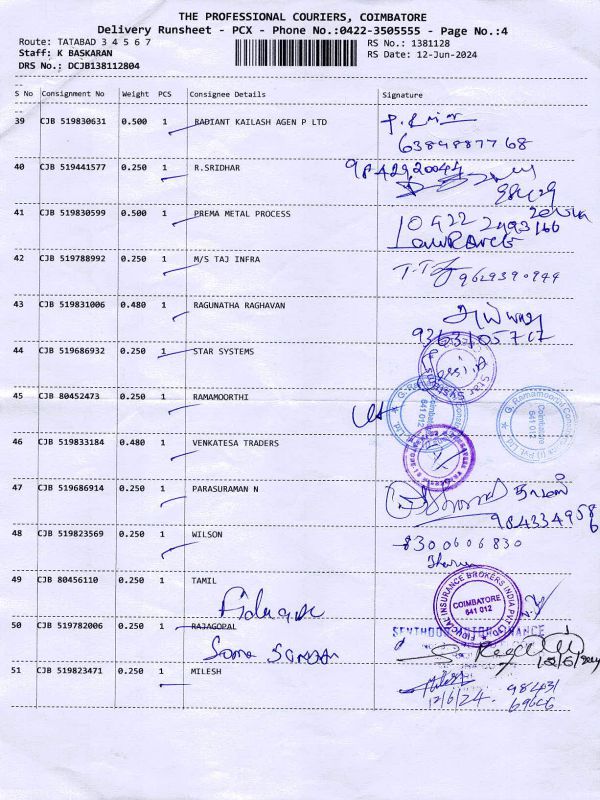 THE PROFESSIONAL COURIERS, COIMBATORE
Delivery Runsheet - PCX - Phone No.:0422-3505555 - Page No.:4
Route: TATABAD 3 4 5 6 7 RS No.: 1381128
Staff: K BASKARAN RS Date: 12-Jun-2024
DRS No.: DCJB138112804
S No Consignment No Weight PCS Consignee Details Signature
39 CJB 519830631 0.500 1 RADIANT KAILASH AGEN P LTD
6384887768
40 CJB 519441577 0.250 1 R.SRIDHAR 9842920044
41 CJB 519830599 0.500 1 PREMA METAL PROCESS 0422 2493166
LAWRANCE
42 CJB 519788992 0.250 1 M/S TAJ INFRA 9629390944
43 CJB 519831006 0.480 1 RAGUNATHA RAGHAVAN
44 CJB 519686932 0.250 1 STAR SYSTEMS
Star Systems
45 CJB 80452473 0.250 1 RAMAMOORTHI
G. Ramamoorthi Coimbatore 641 012 Ltd.
G. Ramamoorthi Coimbatore 641 012 (I) Pvt Ltd.
46 CJB 519833184 0.480 1 VENKATESA TRADERS
47 CJB 519686914 0.250 1 PARASURAMAN N
9843349586
48 CJB 519823569 0.250 1 WILSON 8300606830
49 CJB 80456110 0.250 1 TAMIL
FIDUCIAL INSURANCE BROKERS INDIA PVT LTD COIMBATORE 641 012
50 CJB 519782006 0.250 1 RAJAGOPAL
Soma Sundaram 12/6/2024
51 CJB 519823471 0.250 1 MILESH
12/6/24